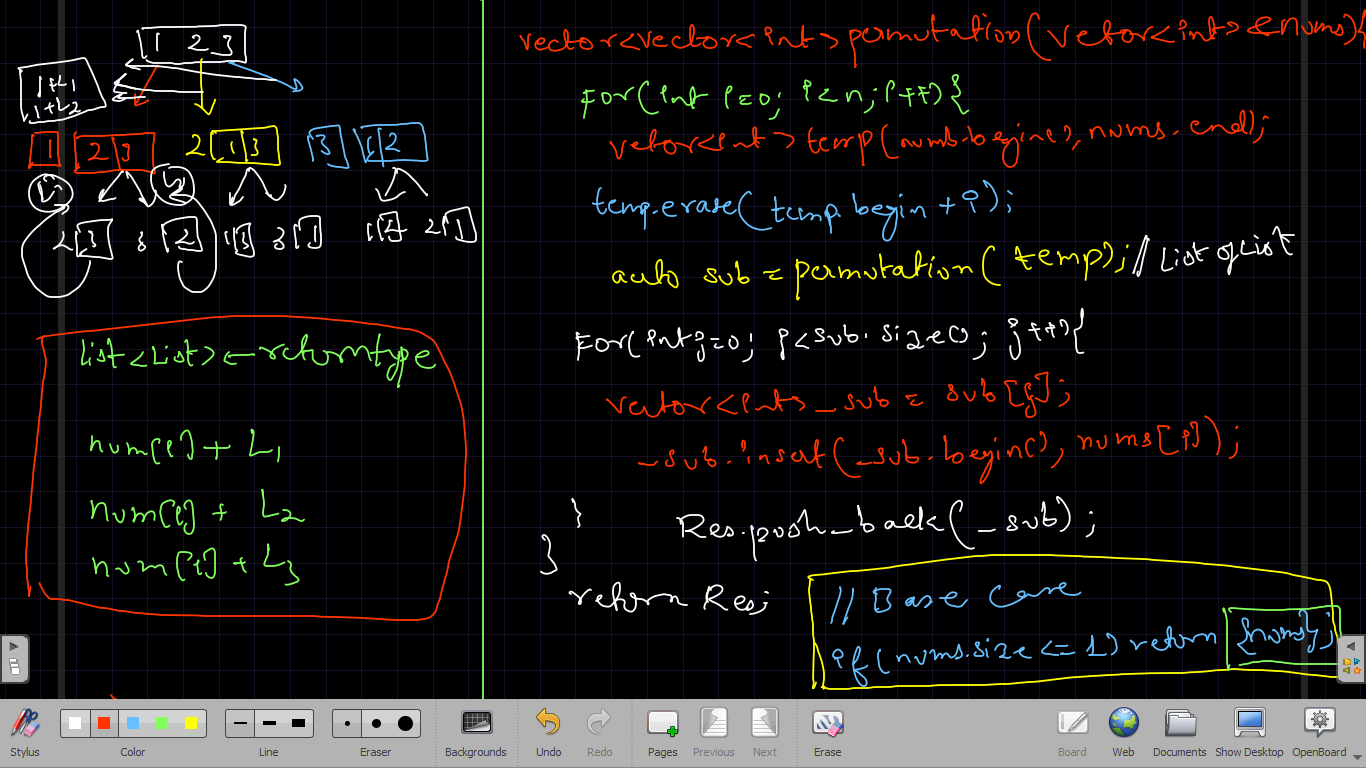 1 2 3
1+L1
1+L2
1 2 3 2 1 3 3 1 2
L1 L2
2 3 3 2 1 3 3 1 1 2 2 1
List<List> ← returntype
num[i] + L1
num[i] + L2
num[i] + L3
vector<vector<int>permutation(vetor<int> &nums){
For(int i=0; i<n; i++){
vetor<int> temp(nums.begin(), nums.end);
temp.erase(temp.begin + i);
auto sub = permutation(temp); // List of List
For(int j=0; j<sub.size(); j++){
vector<int> _sub = sub[j];
_sub.insert(_sub.begin(), nums[i]);
} Res.push_back(_sub);
}
return Res;
// Base Case
if(nums.size <= 1) return {nums};
Stylus
Color
Line
Eraser
Backgrounds
Undo
Redo
Pages
Previous
Next
Erase
Board
Web
Documents
Show Desktop
OpenBoard